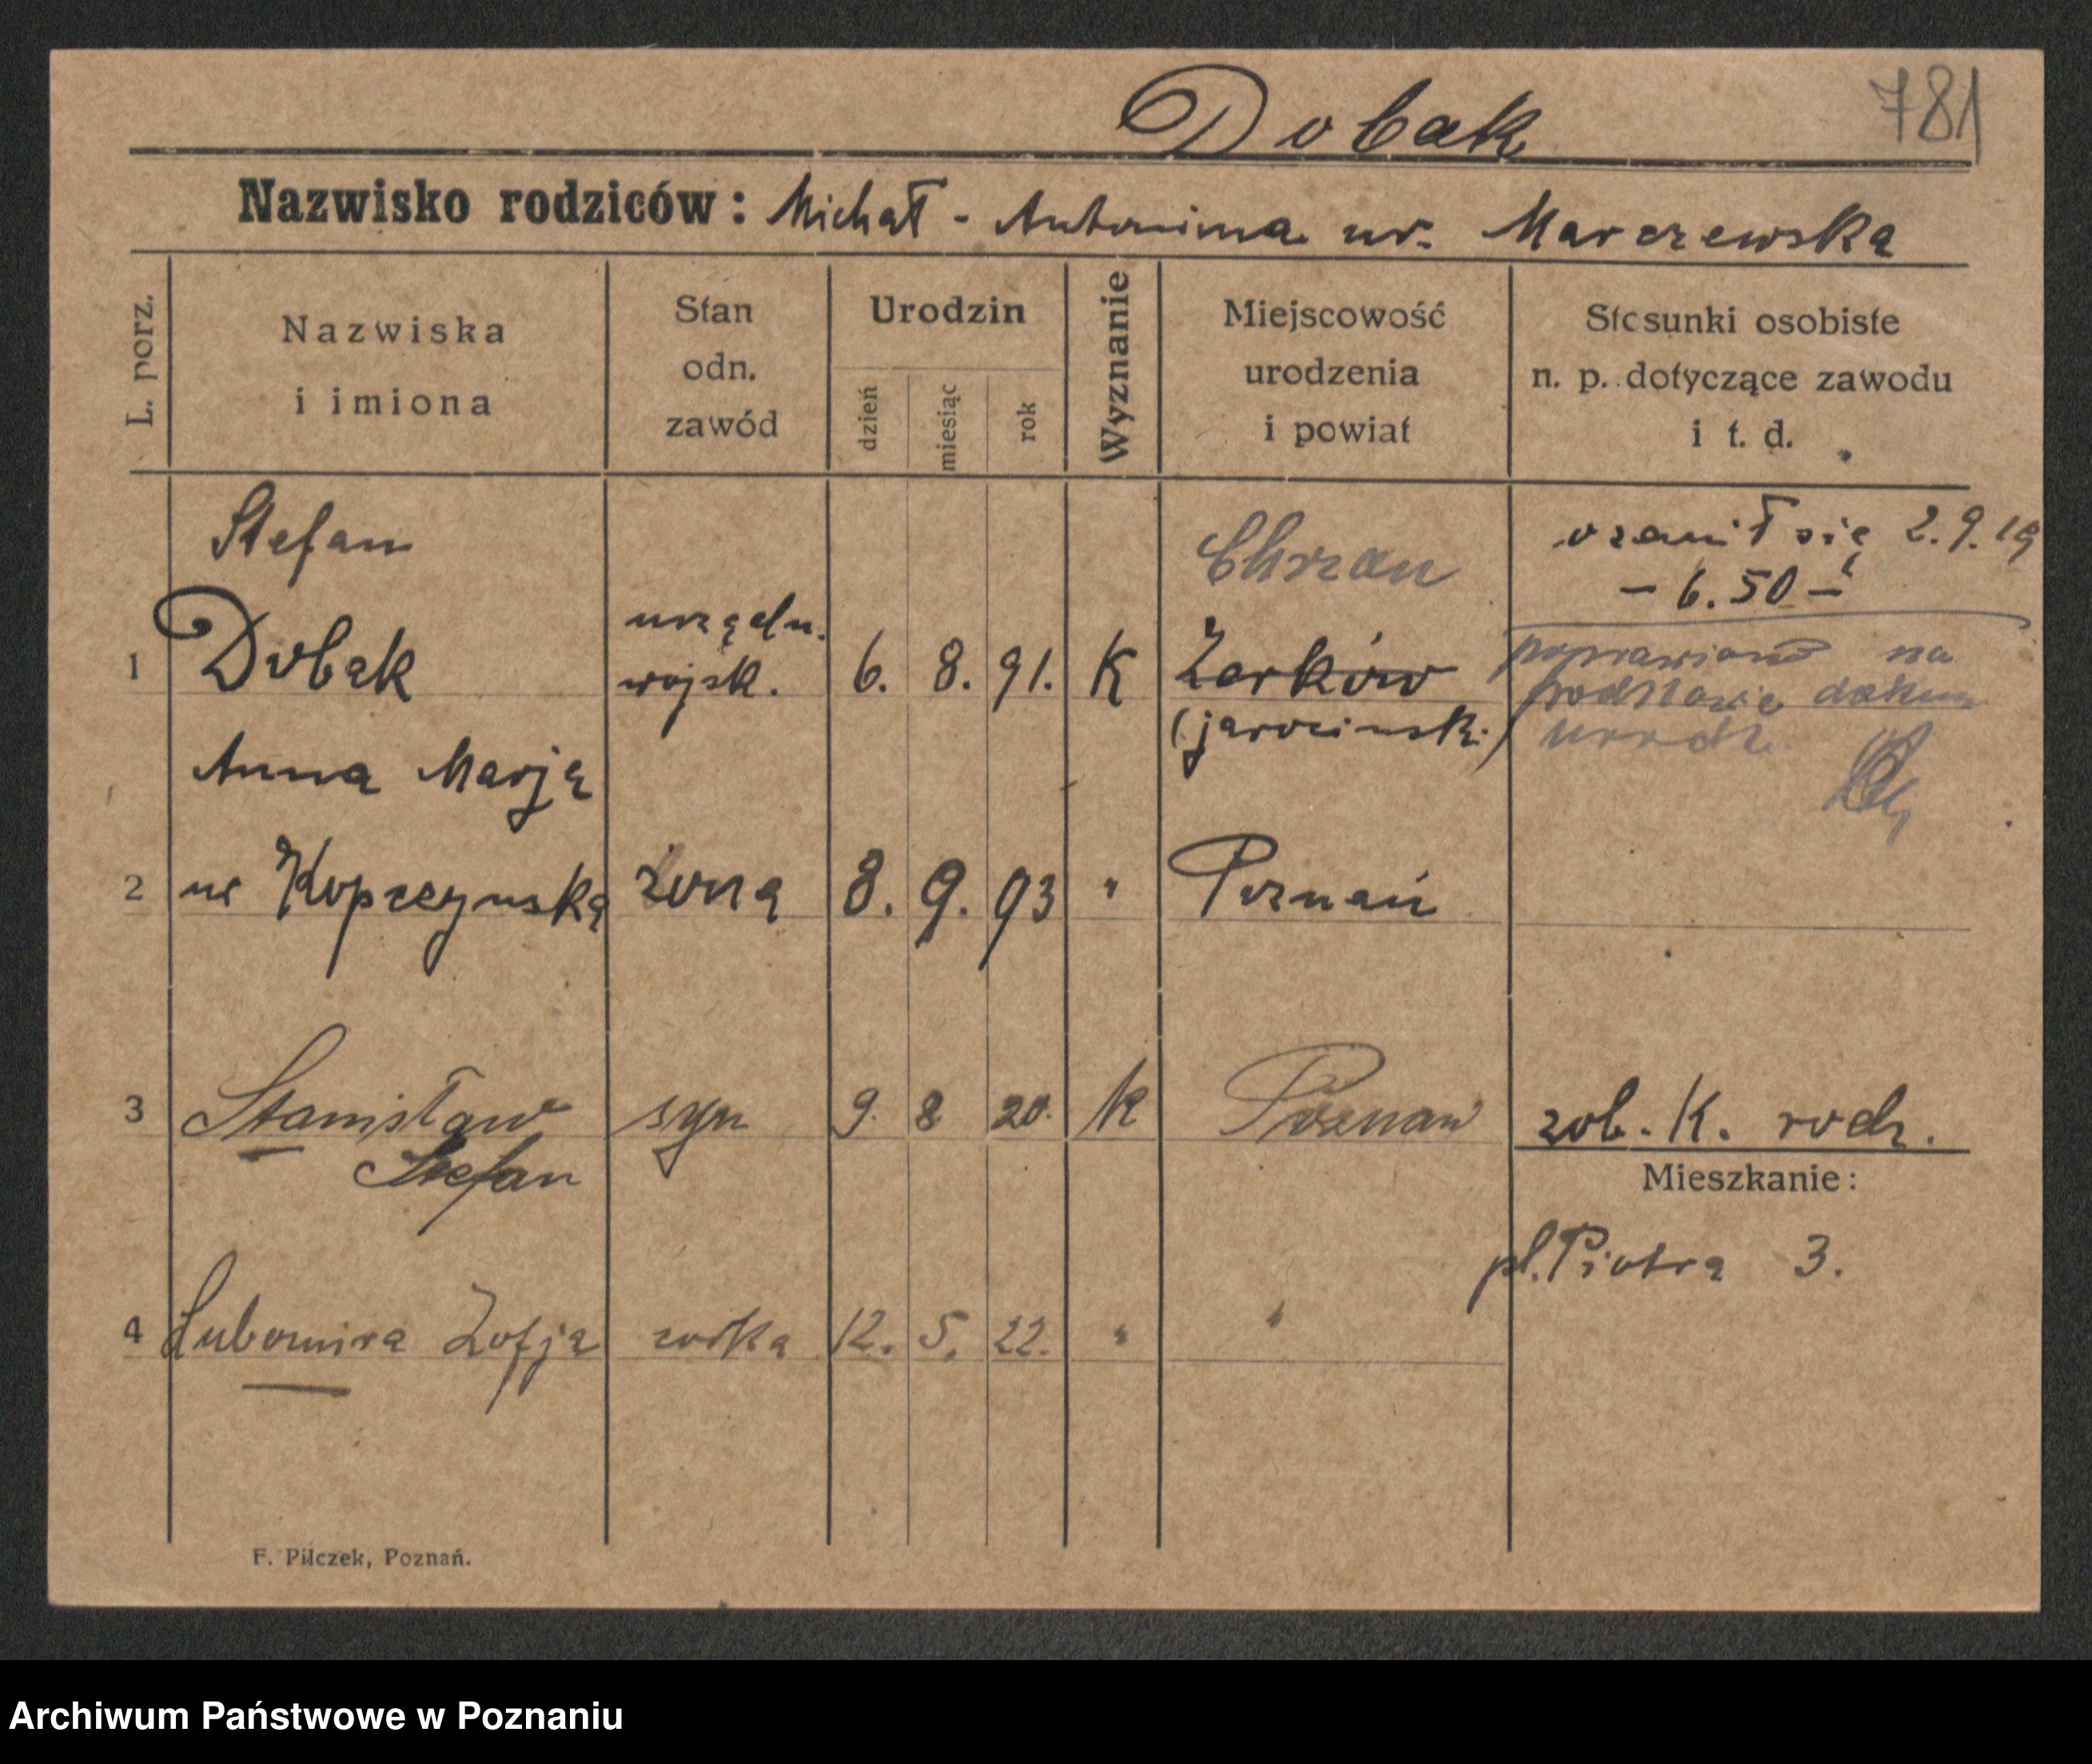 Dobak 781
Nazwisko rodziców: Michał - Antonina ur. Marczewska
L. porz.
Nazwiska
i imiona
Stan
odn.
zawód
Urodzin
dzień
miesiąc
rok
Wyznanie
Miejscowość
urodzenia
i powiat
Stosunki osobiste
n. p. dotyczące zawodu
i t. d.
Stefan
1 Dobak urzędn. wojsk. 6. 8. 91. K Chrzan Żerków (jarocinski)
ożenił się 2.9.19
- 6.50 -
poprawiono na
podstawie dokum
urodz.
Anna Marja
2 ur Kopczynska żona 8. 9. 93 " Poznań
3 Stanisław syn 9. 8 20. K Poznań zob. K. rodz.
Stefan
Mieszkanie:
pl. Piotra 3.
4 Lubomira Zofja córka 12. 5. 22. " "
F. Pilczek, Poznań.
Archiwum Państwowe w Poznaniu